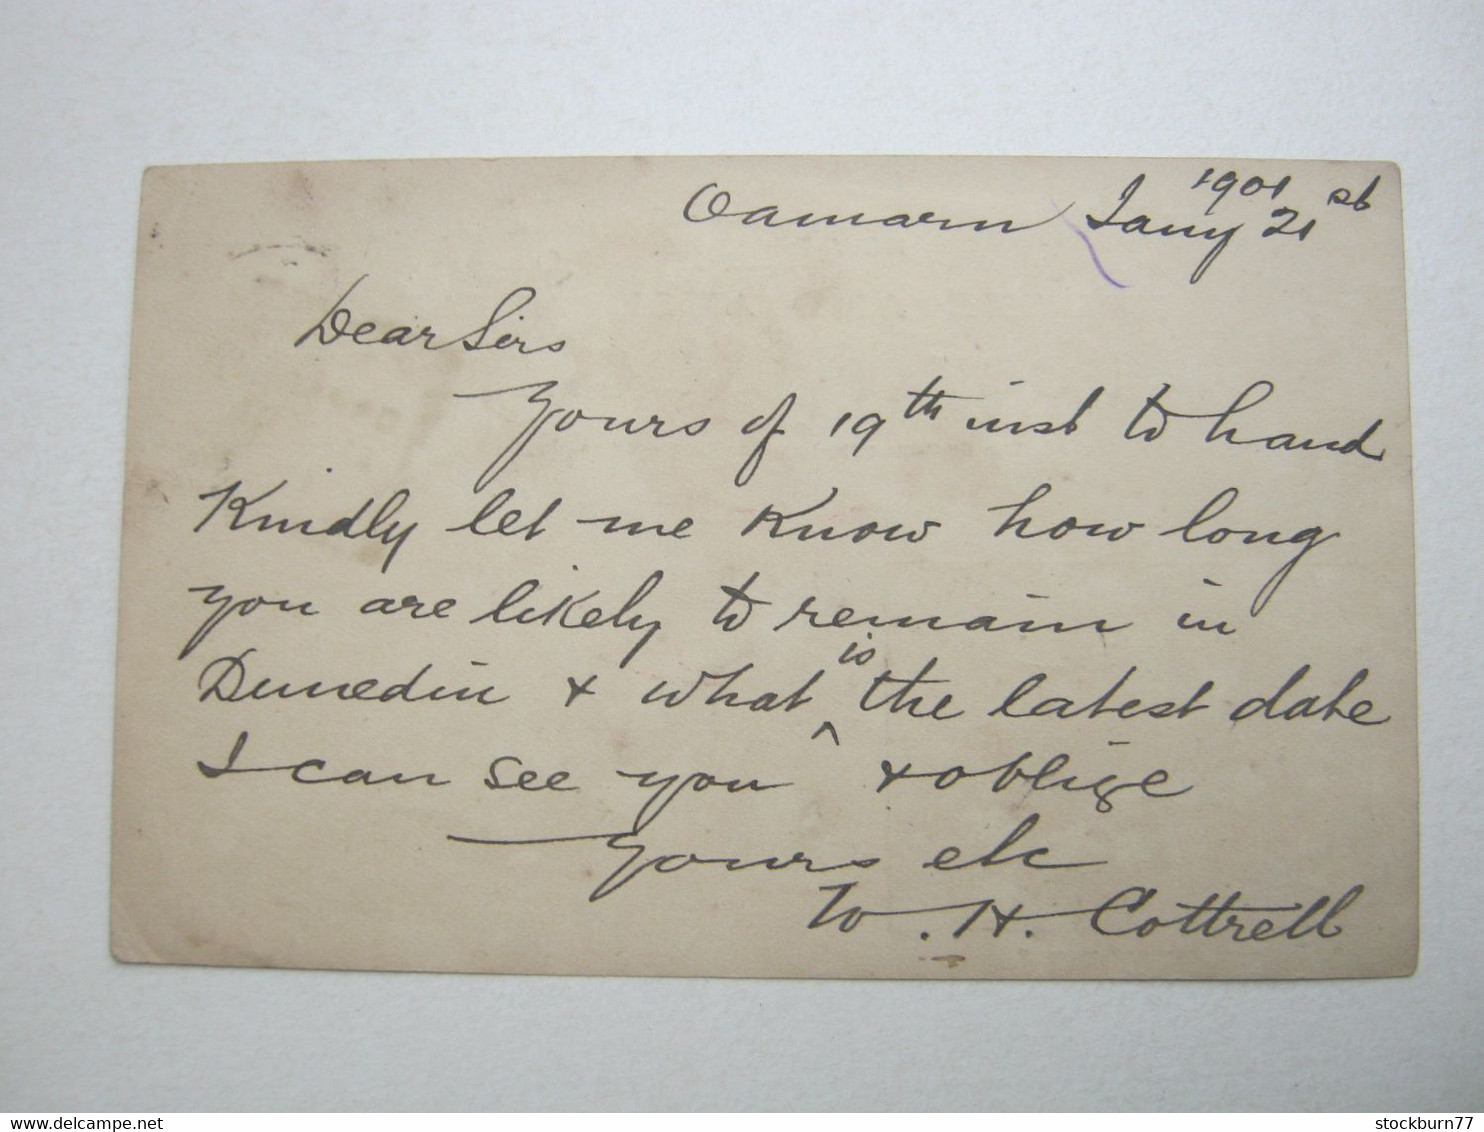 1901
Oamaru Jany 21st
Dear Sirs
Yours of 19th inst to hand
Kindly let me know how long
you are likely to remain in
Dunedin & what is the latest date
I can see you & oblige
Yours etc
W. H. Cottrell
www.delcampe.net
stockburn77